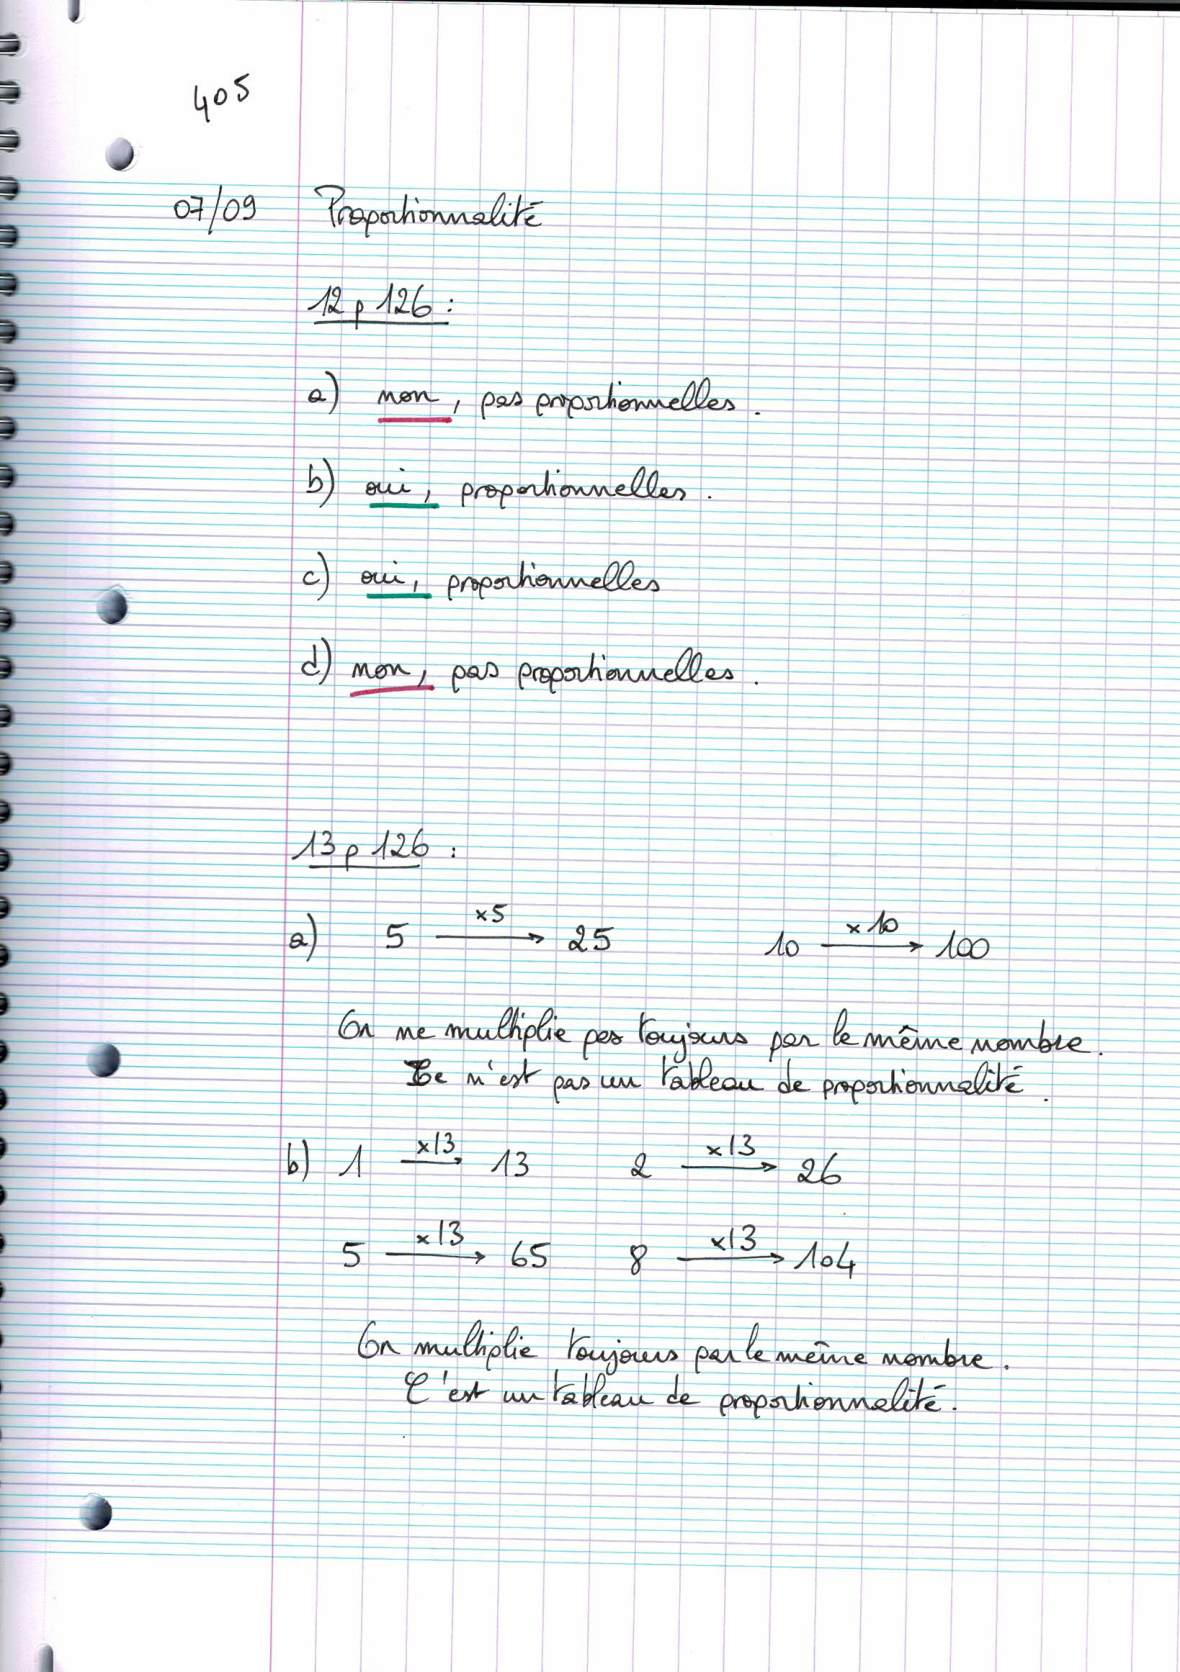 405
07/09 Proportionnalité
12 p 126 :
a) non, pas proportionnelles.
b) oui, proportionnelles.
c) oui, proportionnelles
d) non, pas proportionnelles.
13 p 126 :
a) 5 ×5→ 25 10 ×10→ 100
On ne multiplie pas toujours par le même nombre.
Ce n'est pas un tableau de proportionnalité.
b) 1 ×13→ 13 2 ×13→ 26
5 ×13→ 65 8 ×13→ 104
On multiplie toujours par le même nombre.
C'est un tableau de proportionnalité.